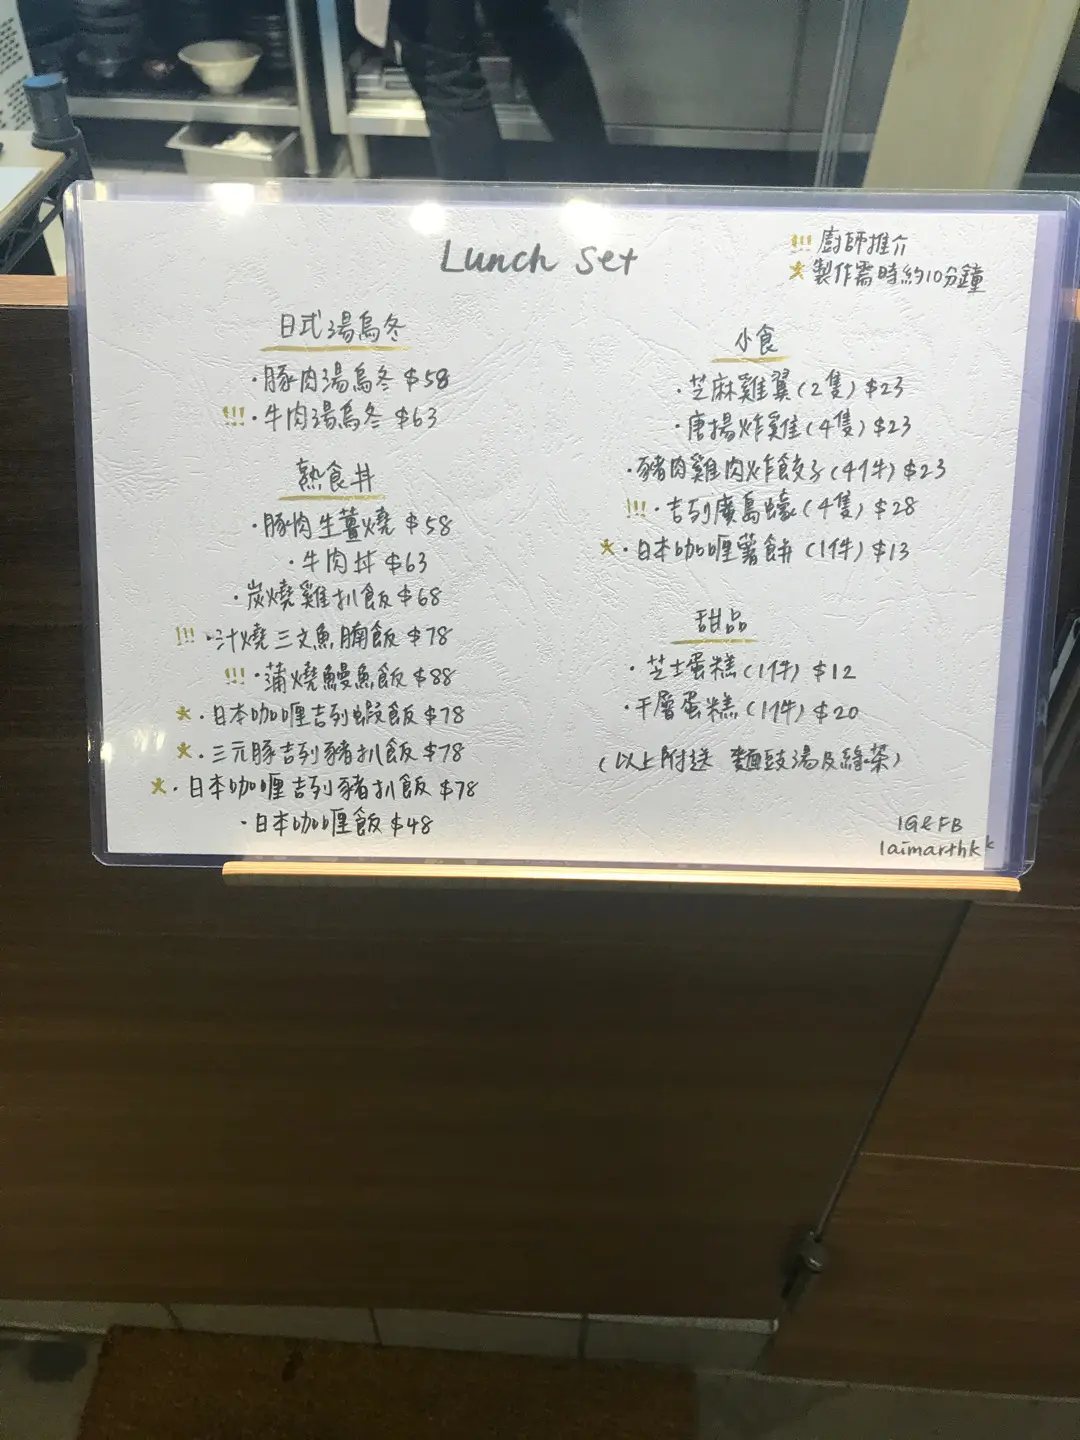 Lunch Set
!!! 廚師推介
★ 製作需時約10分鐘
日式湯烏冬
·豚肉湯烏冬 $58
!!! ·牛肉湯烏冬 $63
熱食丼
·豚肉生薑燒 $58
·牛肉丼 $63
·炭燒雞扒飯 $68
!!! ·汁燒三文魚腩飯 $78
!!! ·蒲燒鰻魚飯 $88
★ ·日本咖喱吉列蝦飯 $78
★ ·三元豚吉列豬扒飯 $78
★ ·日本咖喱吉列豬扒飯 $78
·日本咖喱飯 $48
小食
·芝麻雞翼(2隻) $23
·唐揚炸雞(4隻) $23
·豬肉雞肉炸餃子(4件) $23
!!! ·吉列廣島蠔(4隻) $28
★ ·日本咖喱薯餅 (1件) $13
甜品
·芝士蛋糕(1件) $12
·千層蛋糕(1件) $20
(以上附送 麵豉湯及綠茶)
IG&FB
laimarthkk